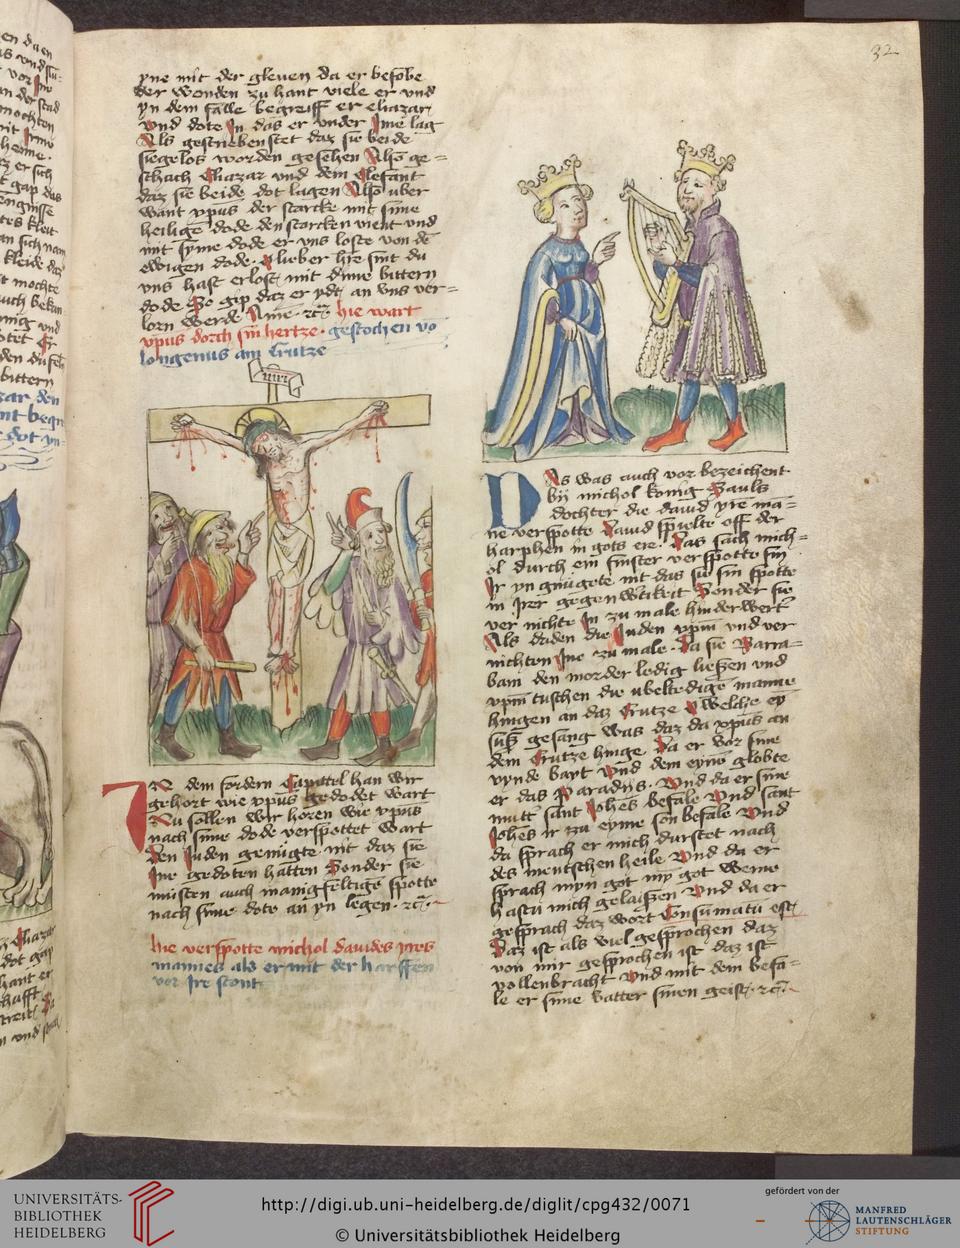 32
yne mit der gleuen da er befobe
der wonden zu hant viele er und
yn dem falle begreiff er eliazar
und dote In das er under Ime lag
Als gestrieben stet daz sie beide
siegelos worden gesehen Also ge=
schach Eliazar und dem Elefant
daz sie beide dot lagen Also uber
want xpus der starcke mit sime
heilige dode den starcken vient und
mit syme dode er uns loste von de
ewigen dode lieber hre sint du
uns hast erlost mit dime bittern
dode So gip daz er ydt an uns ver=
lorn werde Ame rc hie wart
xpus dorch sin hertze gestochen vo
longenus am Crutze
IN dem fordern Capittel han wir
gehort wie xpus gedodet wart
Nu sollen wir horen wie xpus
nach sime dode verspottet wart
Den Juden genugte nit daz sie
Ime gedoten hatten Sonder sie
musten auch manigfeltige spotte
nach sime dote an yn legen rc
hie verspotte michol dauides yres
mannes als er mit der harffen
vor Ire stont
DAs was auch vor bezeichent
bij michol konig Sauls
dochter die dauid yre ma=
ne verspotte Dauid spielte off der
harphen in gots ere Das sach mich=
ol durch ein finster verspotte sin
Ir yn gnugete nit das sie sin spotte
in Irer gegenwtikeit Sonder sie
vernichte In zu male hinderwert
Als daden die Juden xpm und ver
nichten Ime zu male Da sie Barra=
bam den morder ledig liessen und
xpm tuschen die ubeltedige manne
hingen an daz Crutze O welche ey
suß gesang was daz da xpus an
dem Crutze hinge Da er vor sine
vynde bart Und dem eyme globte
er das Paradijs Und da er sine
mutt sant Johes befale Und sant
Johes ir zu eyme son befale Und
da sprach er mich durstet nach
des mentschen heile Und da er
sprach myn got my got weme
hastu mich gelaissen Und da er
gesprach daz wort Consumatu est
Daz ist als viel gesprochen daz
von mir gesprochen ist daz ist
vollenbracht Und mit dem befa=
le er sime vatter sinen geist rc
UNIVERSITÄTS-
BIBLIOTHEK
HEIDELBERG
http://digi.ub.uni-heidelberg.de/diglit/cpg432/0071
© Universitätsbibliothek Heidelberg
gefördert von der
MANFRED
LAUTENSCHLÄGER
STIFTUNG